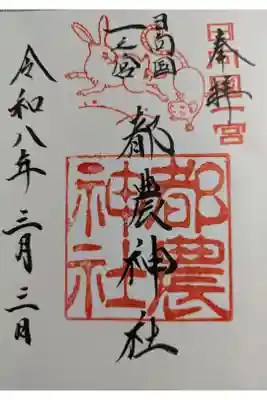 奉拝
日向国
一之宮
都農神社
都農
神社
令和八年三月三日